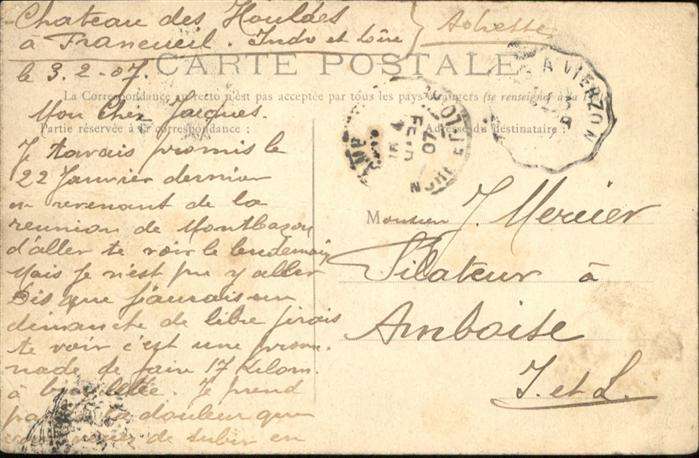 Chateau des Houldes
à Francueil. Indre et Loire } Adresse
le 3.2.07.
CARTE POSTALE
La Correspondance au recto n'est pas acceptée par tous les pays étrangers (se renseigner à la
Mon Cher Jacques.
Partie réservée à la correspondance:
Adresse du destinataire:
A VIERZON
Je t'avais promis le
22 Janvier dernier
en revenant de la
reunion de Montbazon
d'aller te voir le lendemain
Mais je n'est pu y aller
Dis que j'aurais un
dimanche de libre j'irais
te voir c'est une prome
nade de faire 17 Kilom.
à bicyclette. Je prend
part à la douleur que
venez de subir en
Monsieur J. Mercier
Pilateur à
Amboise
I. et L.